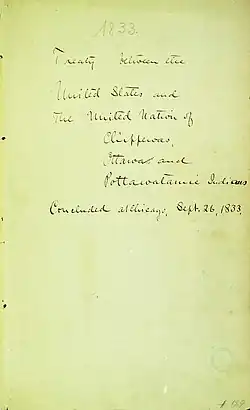 1833.
Treaty between the
United States and
The United Nation of
Chippewas,
Ottawas and
Pottawatamie Indians
Concluded at Chicago, Sept. 26, 1833,